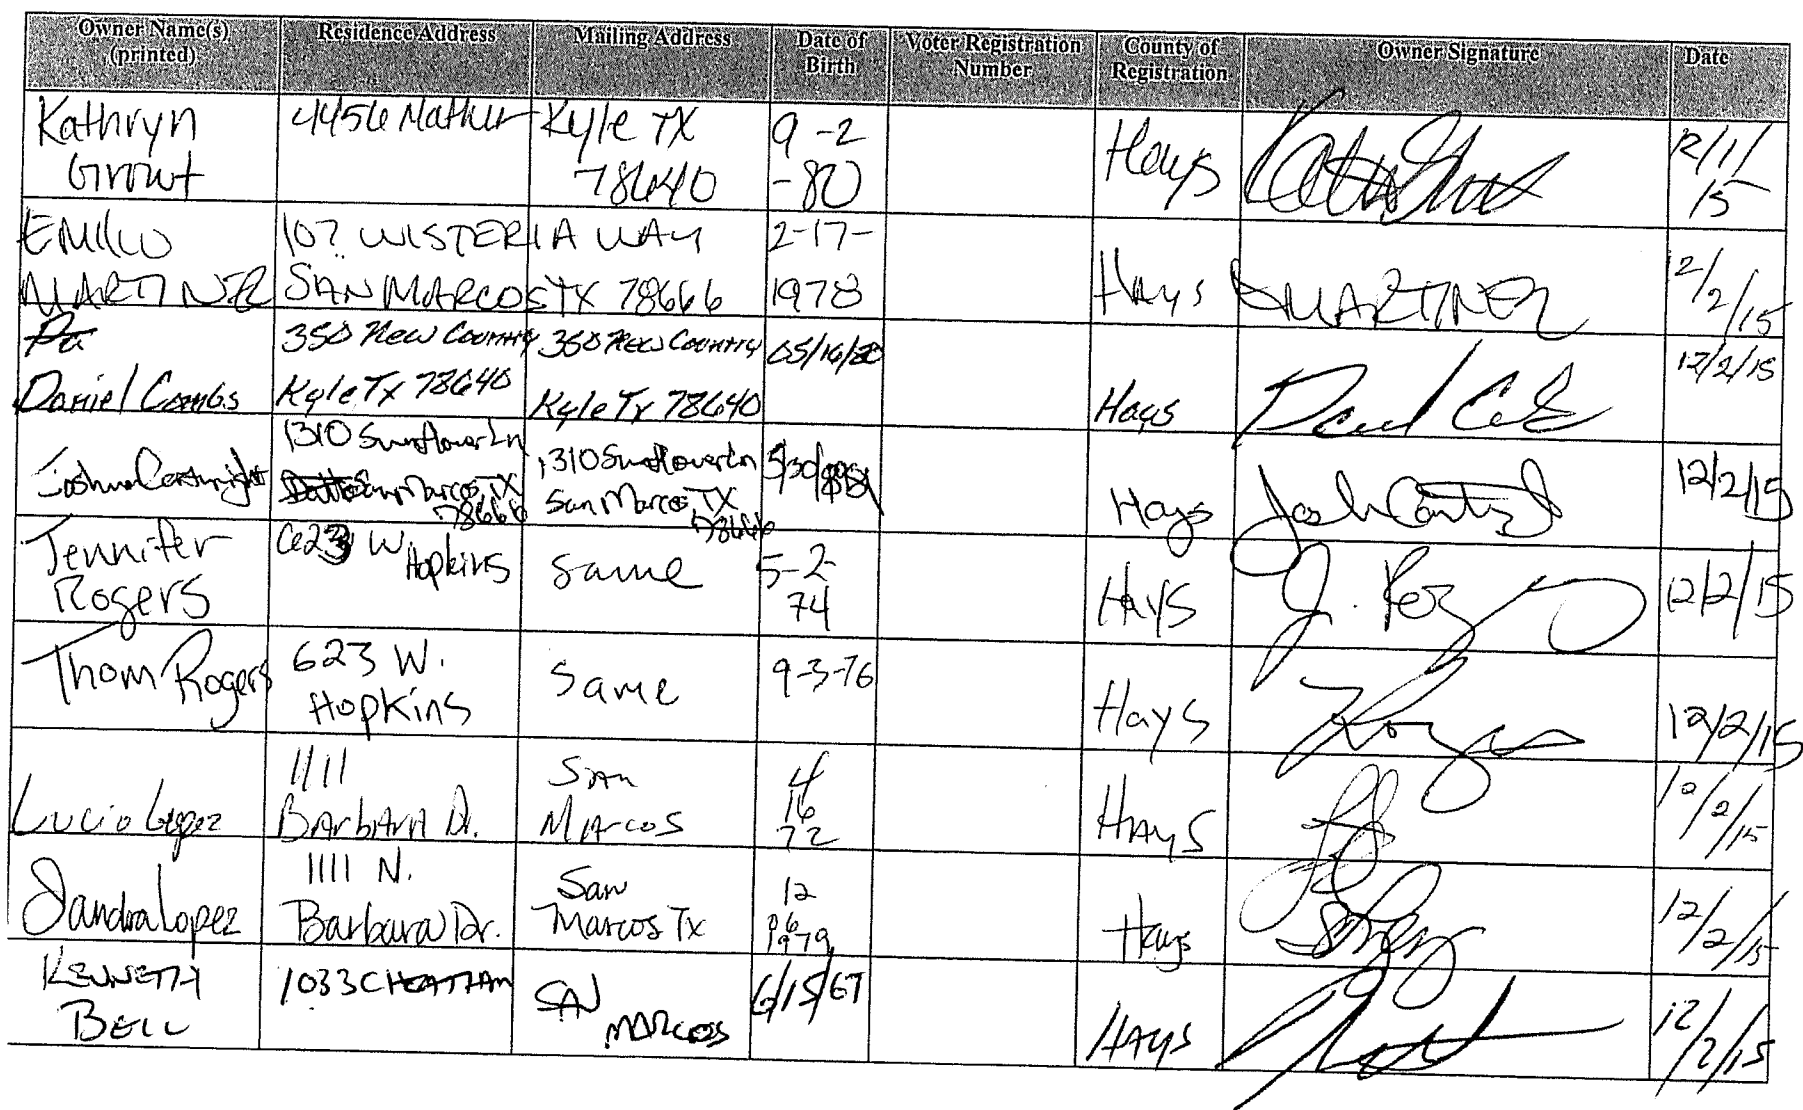 Owner Name(s) (printed) Residence Address Mailing Address Date of Birth Voter Registration Number County of Registration Owner Signature Date
Kathryn Growt 4456 Mather Kyle TX 78640 9-2-80 Hays 12/1/15
EMILIO MARTINEZ 107 WISTERIA WAY SAN MARCOS TX 78666 2-17-1978 HAYS EMARTINEZ 12/2/15
Daniel Combs 350 New Country Kyle Tx 78640 350 New Country Kyle Tx 78640 05/16/80 Hays 12/2/15
Joshua Cartwright 1310 Sunflower Ln San Marcos, TX 78666 1310 Sunflower Ln San Marcos, TX 78666 5/30/ Hays 12/2/15
Jennifer Rogers 623 W Hopkins same 5-2-74 HAYS 12/2/15
Thom Rogers 623 W. Hopkins Same 9-3-76 Hays 12/2/15
Lucio Lopez 1111 Barbara Dr. San Marcos 4 16 72 HAYS /2/15
Sandra Lopez 1111 N. Barbara Dr. San Marcos Tx 12 1979 Hays SLopez 12/2/15
KENNETH BELL 1033 CHEATHAM SAN MARCOS 6/15/67 HAYS 12/2/15